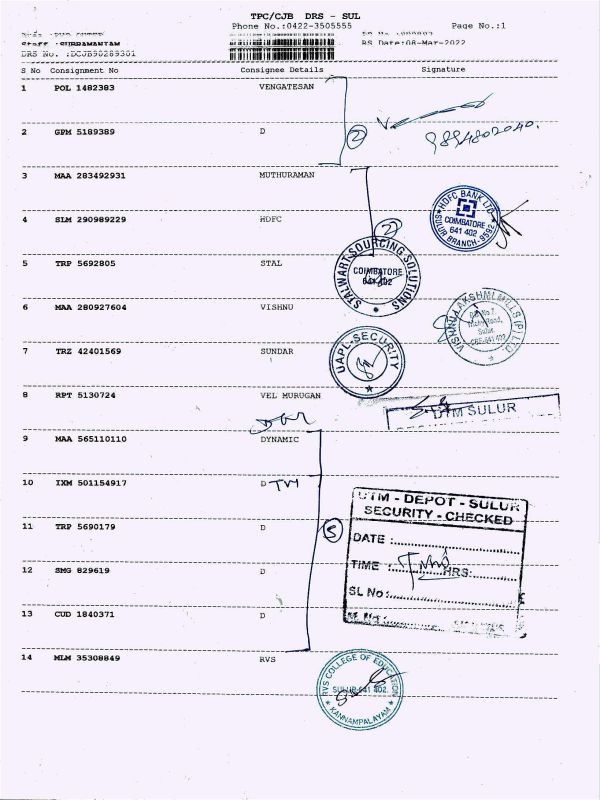 TPC/CJB DRS - SUL
Phone No.:0422-3505555 Page No.:1
Staff :SUBRAMANIAM RS Date:08-Mar-2022
DRS No. :DCJB90289301
S No Consignment No Consignee Details Signature
1 POL 1482383 VENGATESAN
2 GPM 5189389 D 2 9894802040.
3 MAA 283492931 MUTHURAMAN
4 SLM 290989229 HDFC 2 HDFC BANK LTD COIMBATORE 641 402 SULUR BRANCH-9592
5 TRP 5692805 STAL STALWART SOURCING SOLUTIONS COIMBATORE 641 402
6 MAA 280927604 VISHNU VISHNU LAKSHMI MILLS (P) LTD Trichy Road, Sulur. CBE-641 402
7 TRZ 42401569 SUNDAR UAPL-SECURITY
8 RPT 5130724 VEL MURUGAN UTM SULUR
9 MAA 565110110 DYNAMIC
10 IXM 501154917 D TVM
11 TRP 5690179 D 5
12 SMG 829619 D
13 CUD 1840371 D
UTM - DEPOT - SULUR
SECURITY - CHECKED
DATE :
TIME : HRS:
SL No :
14 MLM 35308849 RVS RVS COLLEGE OF EDUCATION SULUR 641 402. KANNAMPALAYAM